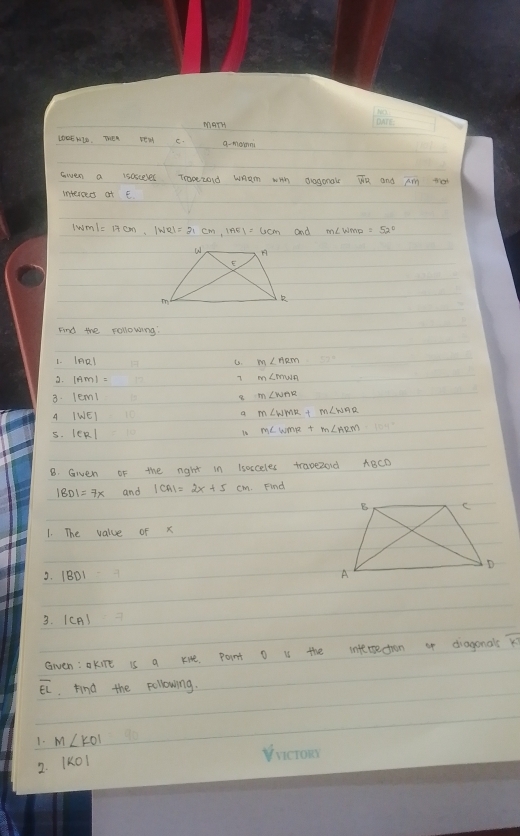 MATH
NO.:
DATE:
LORENZO, THEA FEM C.
Given a Isosceles Trapezoid WARM with diagonals WR and AM that
intersect at E.
|WM|= 17 cm, |WR|= 21 cm, |AE| = 6cm and m∠WMR = 52°
W
A
E
M
R
Find the following:
1. |AR|
2. |AM| =
3. |EM|
4 |WE|
5. |ER|
6. m∠ARM
7 m∠MWA
8 m∠WAR
9 m∠WMR + m∠WAR
10 m∠WMR + m∠ARM
B. Given OF the right in Isosceles trapezoid ABCD
|BD|= 7x and |CA|= 2x + 5 cm. Find
B
C
A
D
1. The value of x
2. |BD|
3. |CA|
Given: KITE is a kite. Point O is the intersection of diagonals
EL. Find the Following.
1. M∠KOI
2. |KO|
VICTORY